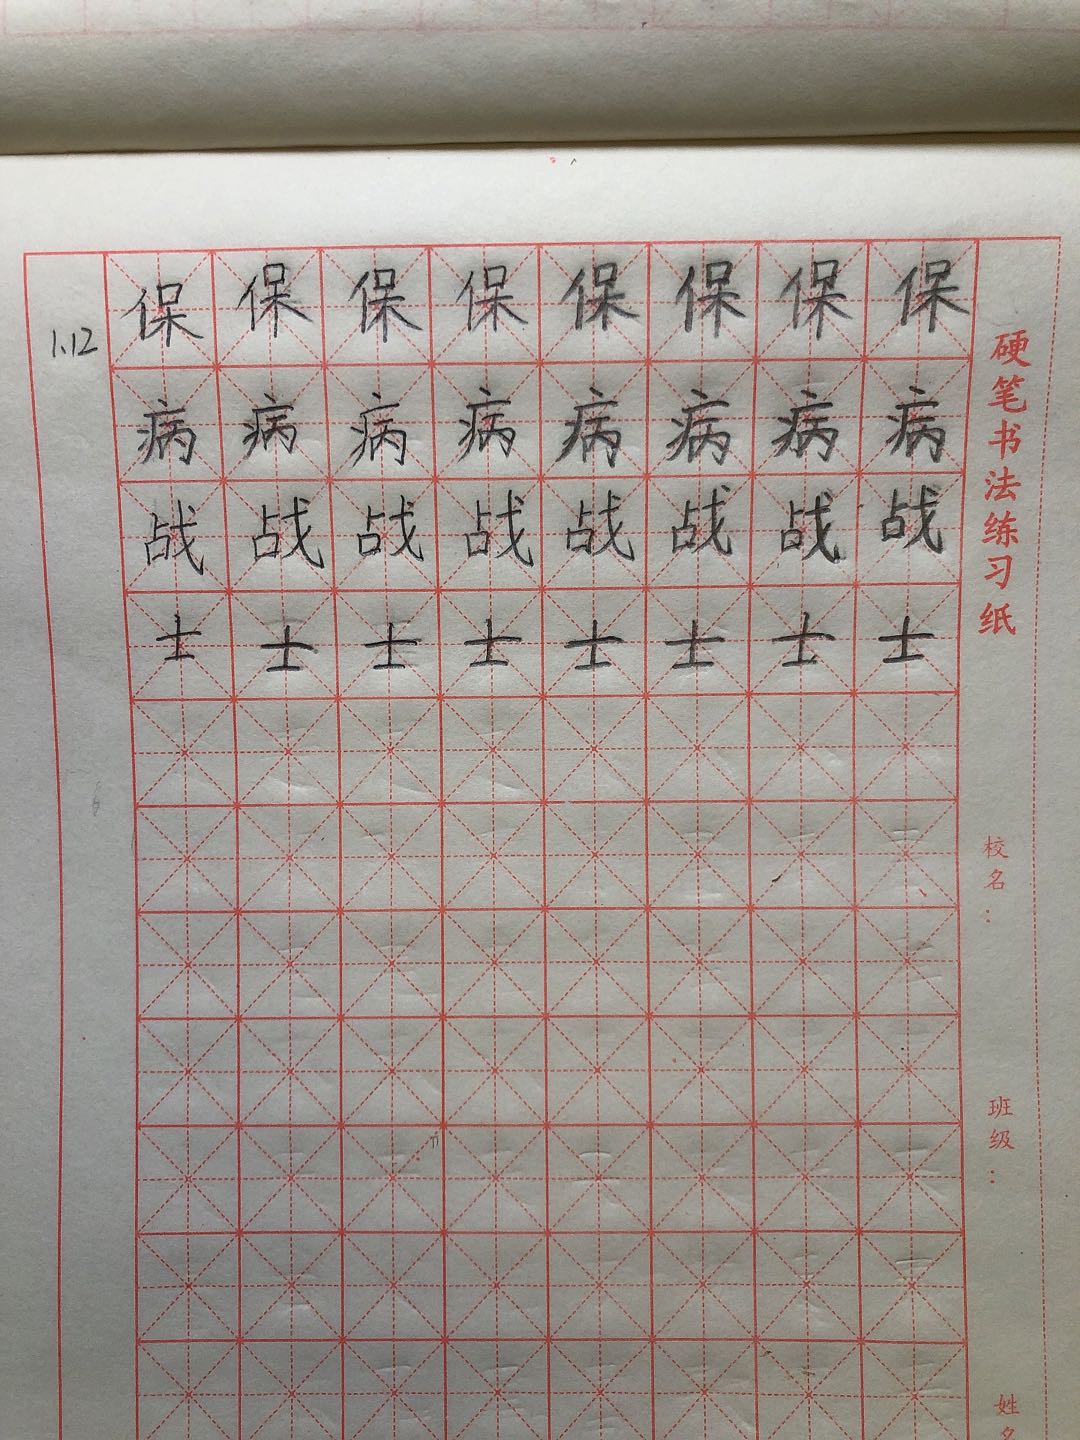 1.12
保保保保保保保保
病病病病病病病病
战战战战战战战战
士士士士士士士士
硬笔书法练习纸
校名：
班级：
姓名